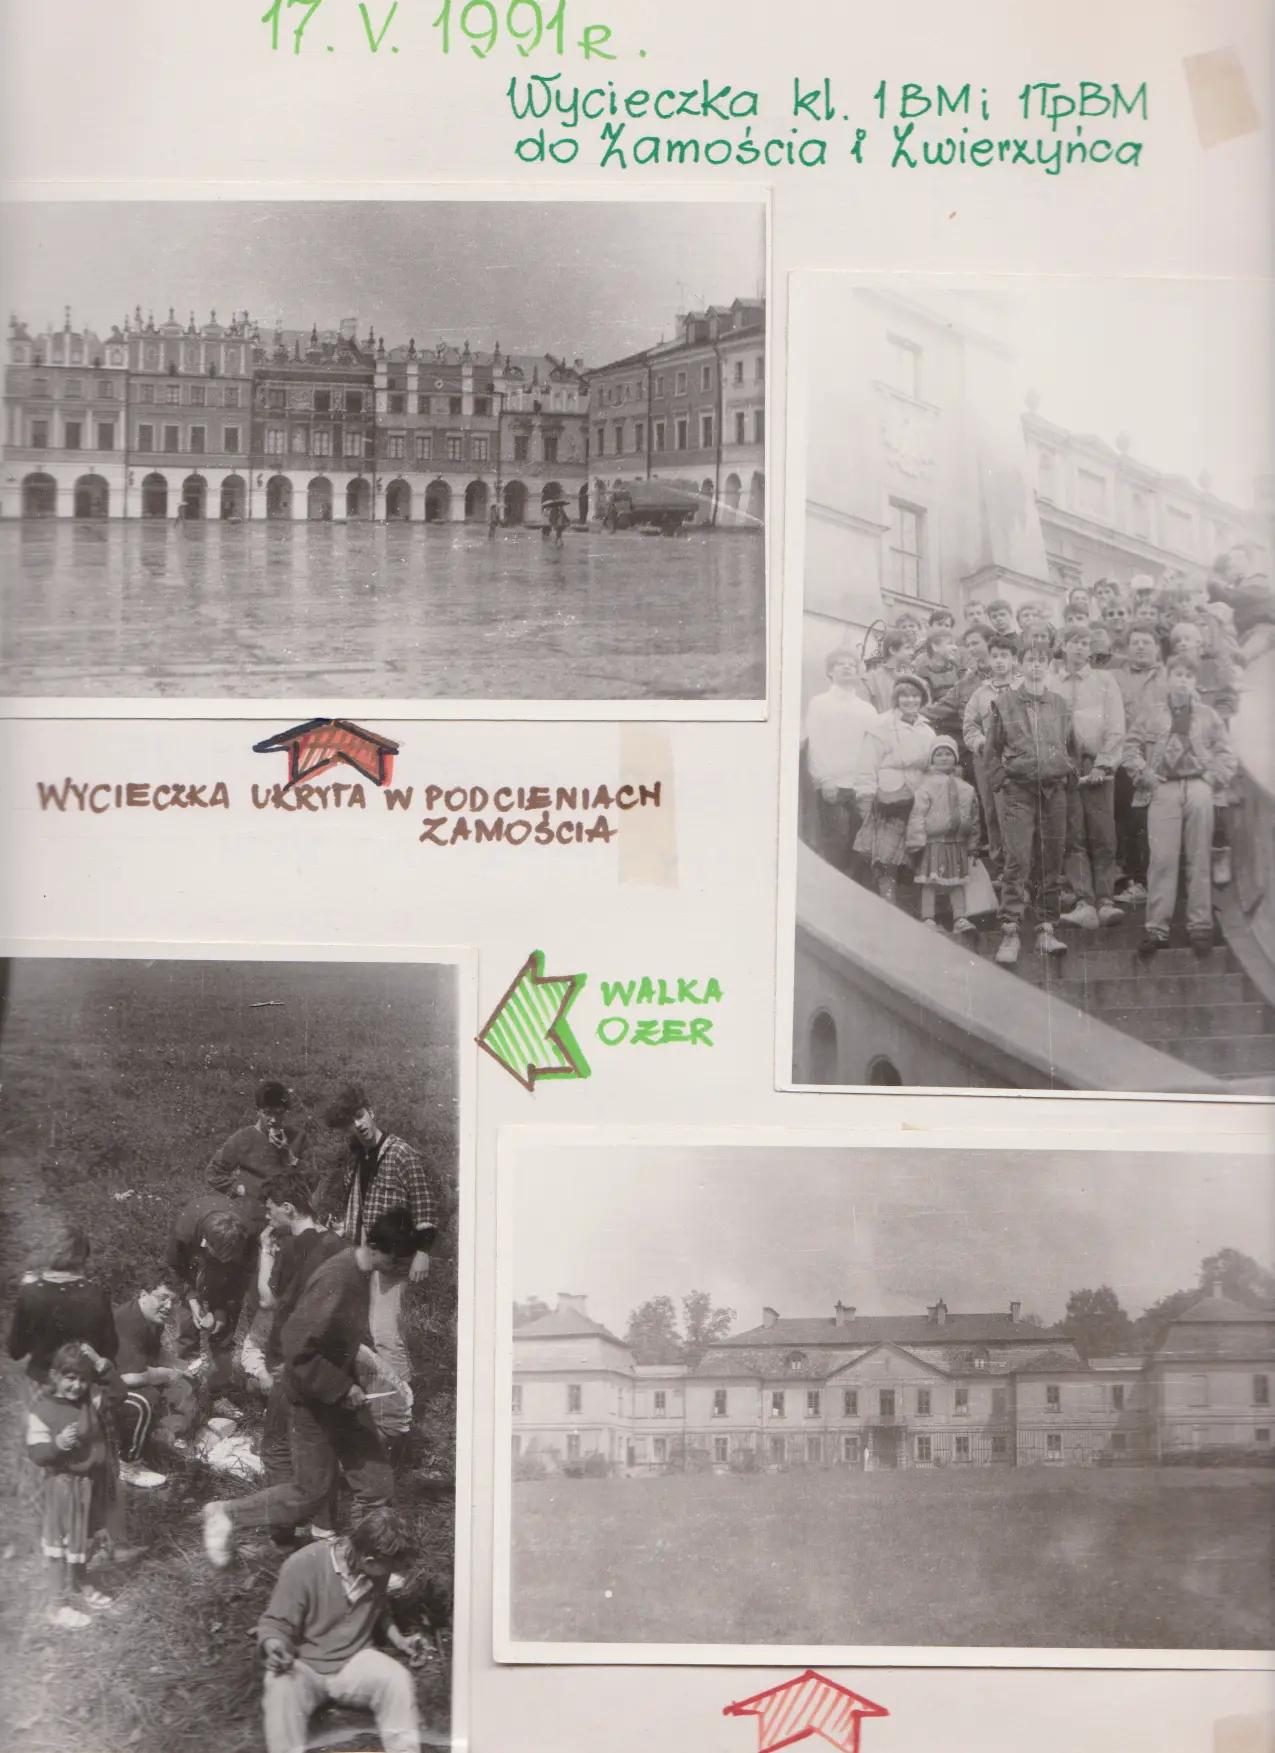 17. V. 1991 R.
Wycieczka kl. 1 BM i 1TpBM
do Zamościa i Zwierzyńca
WYCIECZKA UKRYTA W PODCIENIACH
ZAMOŚCIA
WALKA
O ŻER